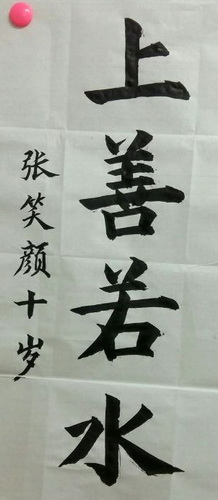 上善若水
张笑颜十岁